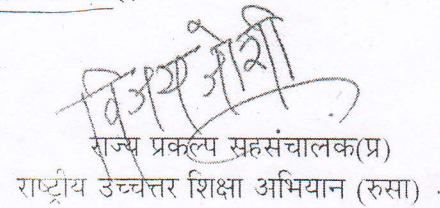 विजय जोशी
राज्य प्रकल्प सहसंचालक(प्र)
राष्ट्रीय उच्चत्तर शिक्षा अभियान (रुसा)